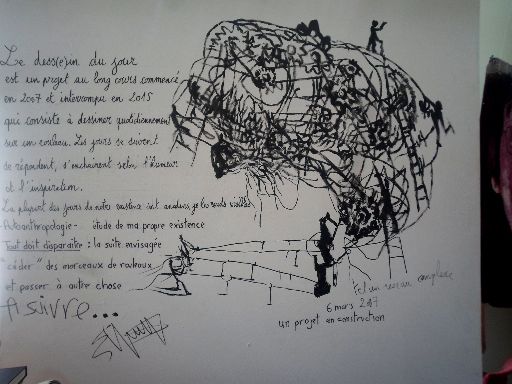 Le dess(e)in du jour
est un projet au long cours commencé
en 2007 et interrompu en 2015
qui consiste à dessiner quotidiennement
sur un rouleau. Les jours se suivent
se répondent, s'enchainent selon l'humeur
et l'inspiration.
La plupart des jours de notre existence sont anodins, je les rends visibles
-Autoanthropologie- étude de ma propre existence
Tout doit disparaitre : la suite envisagée
"céder" des morceaux de rouleaux
et passer à autre chose
A SUIVRE...
tel un réseau complexe
6 mars 2017
un projet en construction